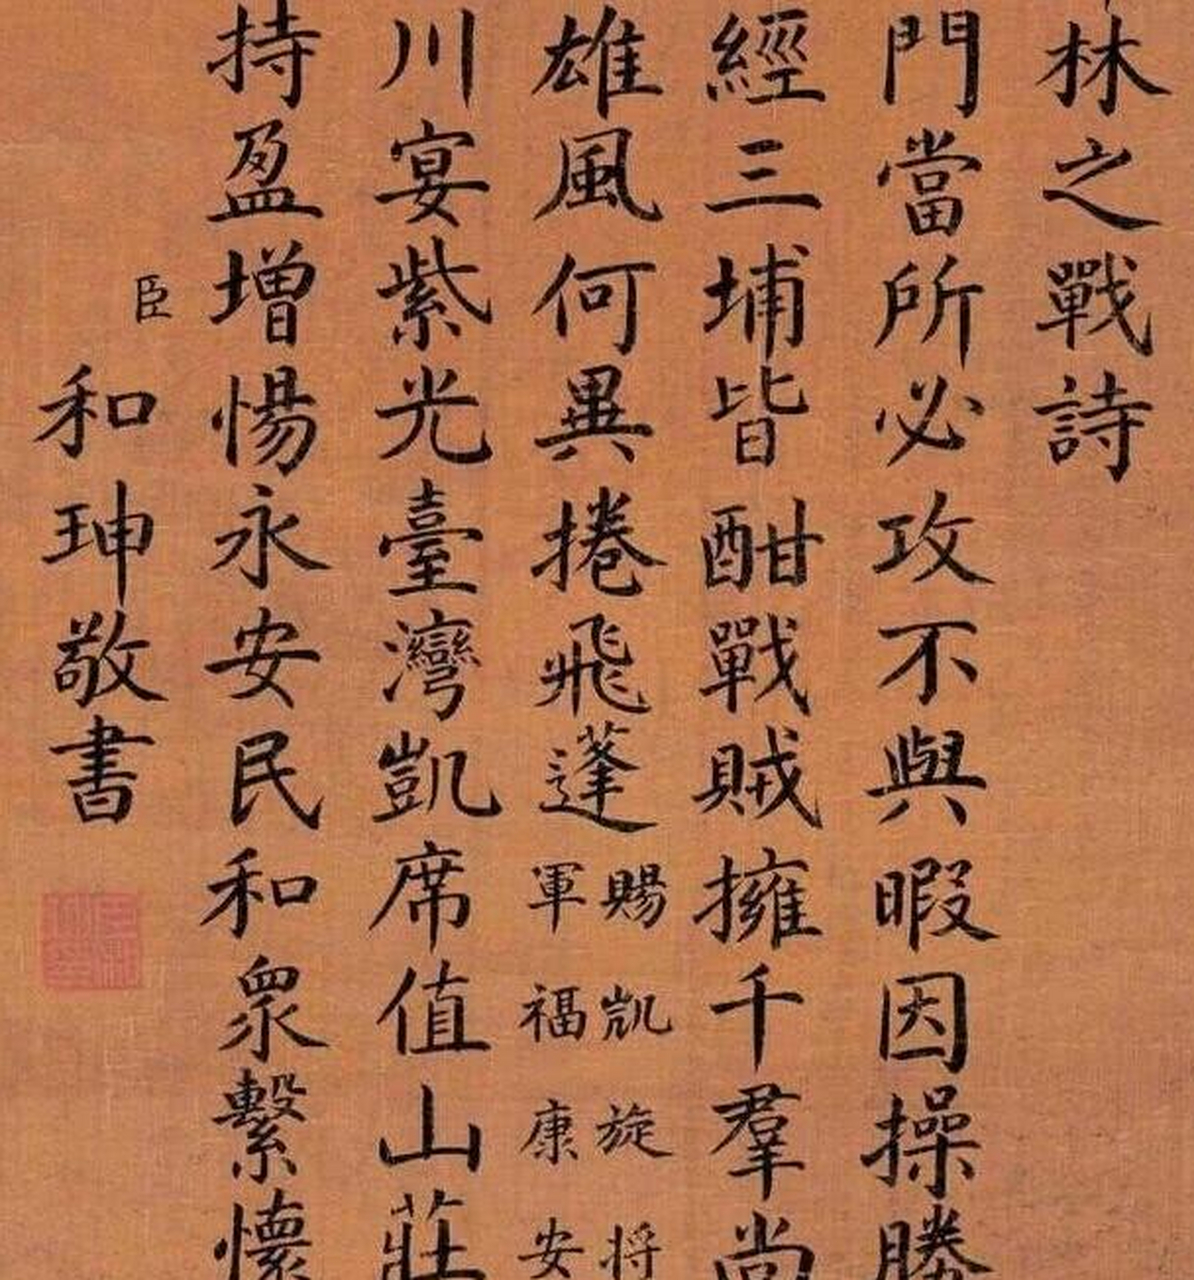 林之戰詩
門當所必攻不與暇因操勝
經三埔皆酣戰賊擁千羣尚
雄風何異捲飛蓬
賜凱旋将
軍福康安
川宴紫光臺灣凱席值山莊
持盈增惕永安民和眾繫懷
臣
和珅敬書